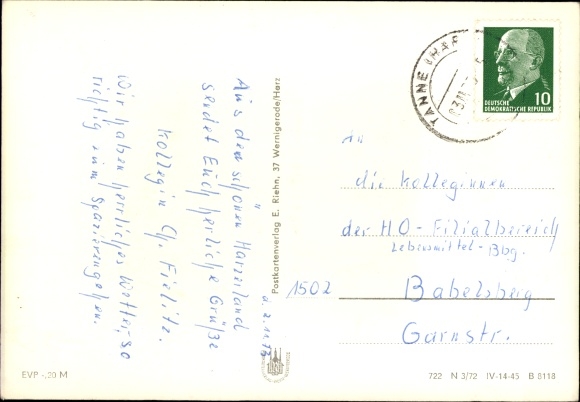 Aus dem schönen Harzeiland
sendet Euch herzliche Grüße
Kollegin Ch. Fielitz.
Wir haben herrliches Wetter, so
richtig zum Spazierengehen.
d. 2.11.73
Postkartenverlag E. Riehn, 37 Wernigerode/Harz
TANNE (HARZ
DEUTSCHE
DEMOKRATISCHE REPUBLIK
10
An
die Kolleginnen
der HO-Filialbereich
Lebensmittel-Bbg.
1502 Babelsberg
Garnstr.
EVP -,20 M
722 N 3/72 IV-14-45 B 8118